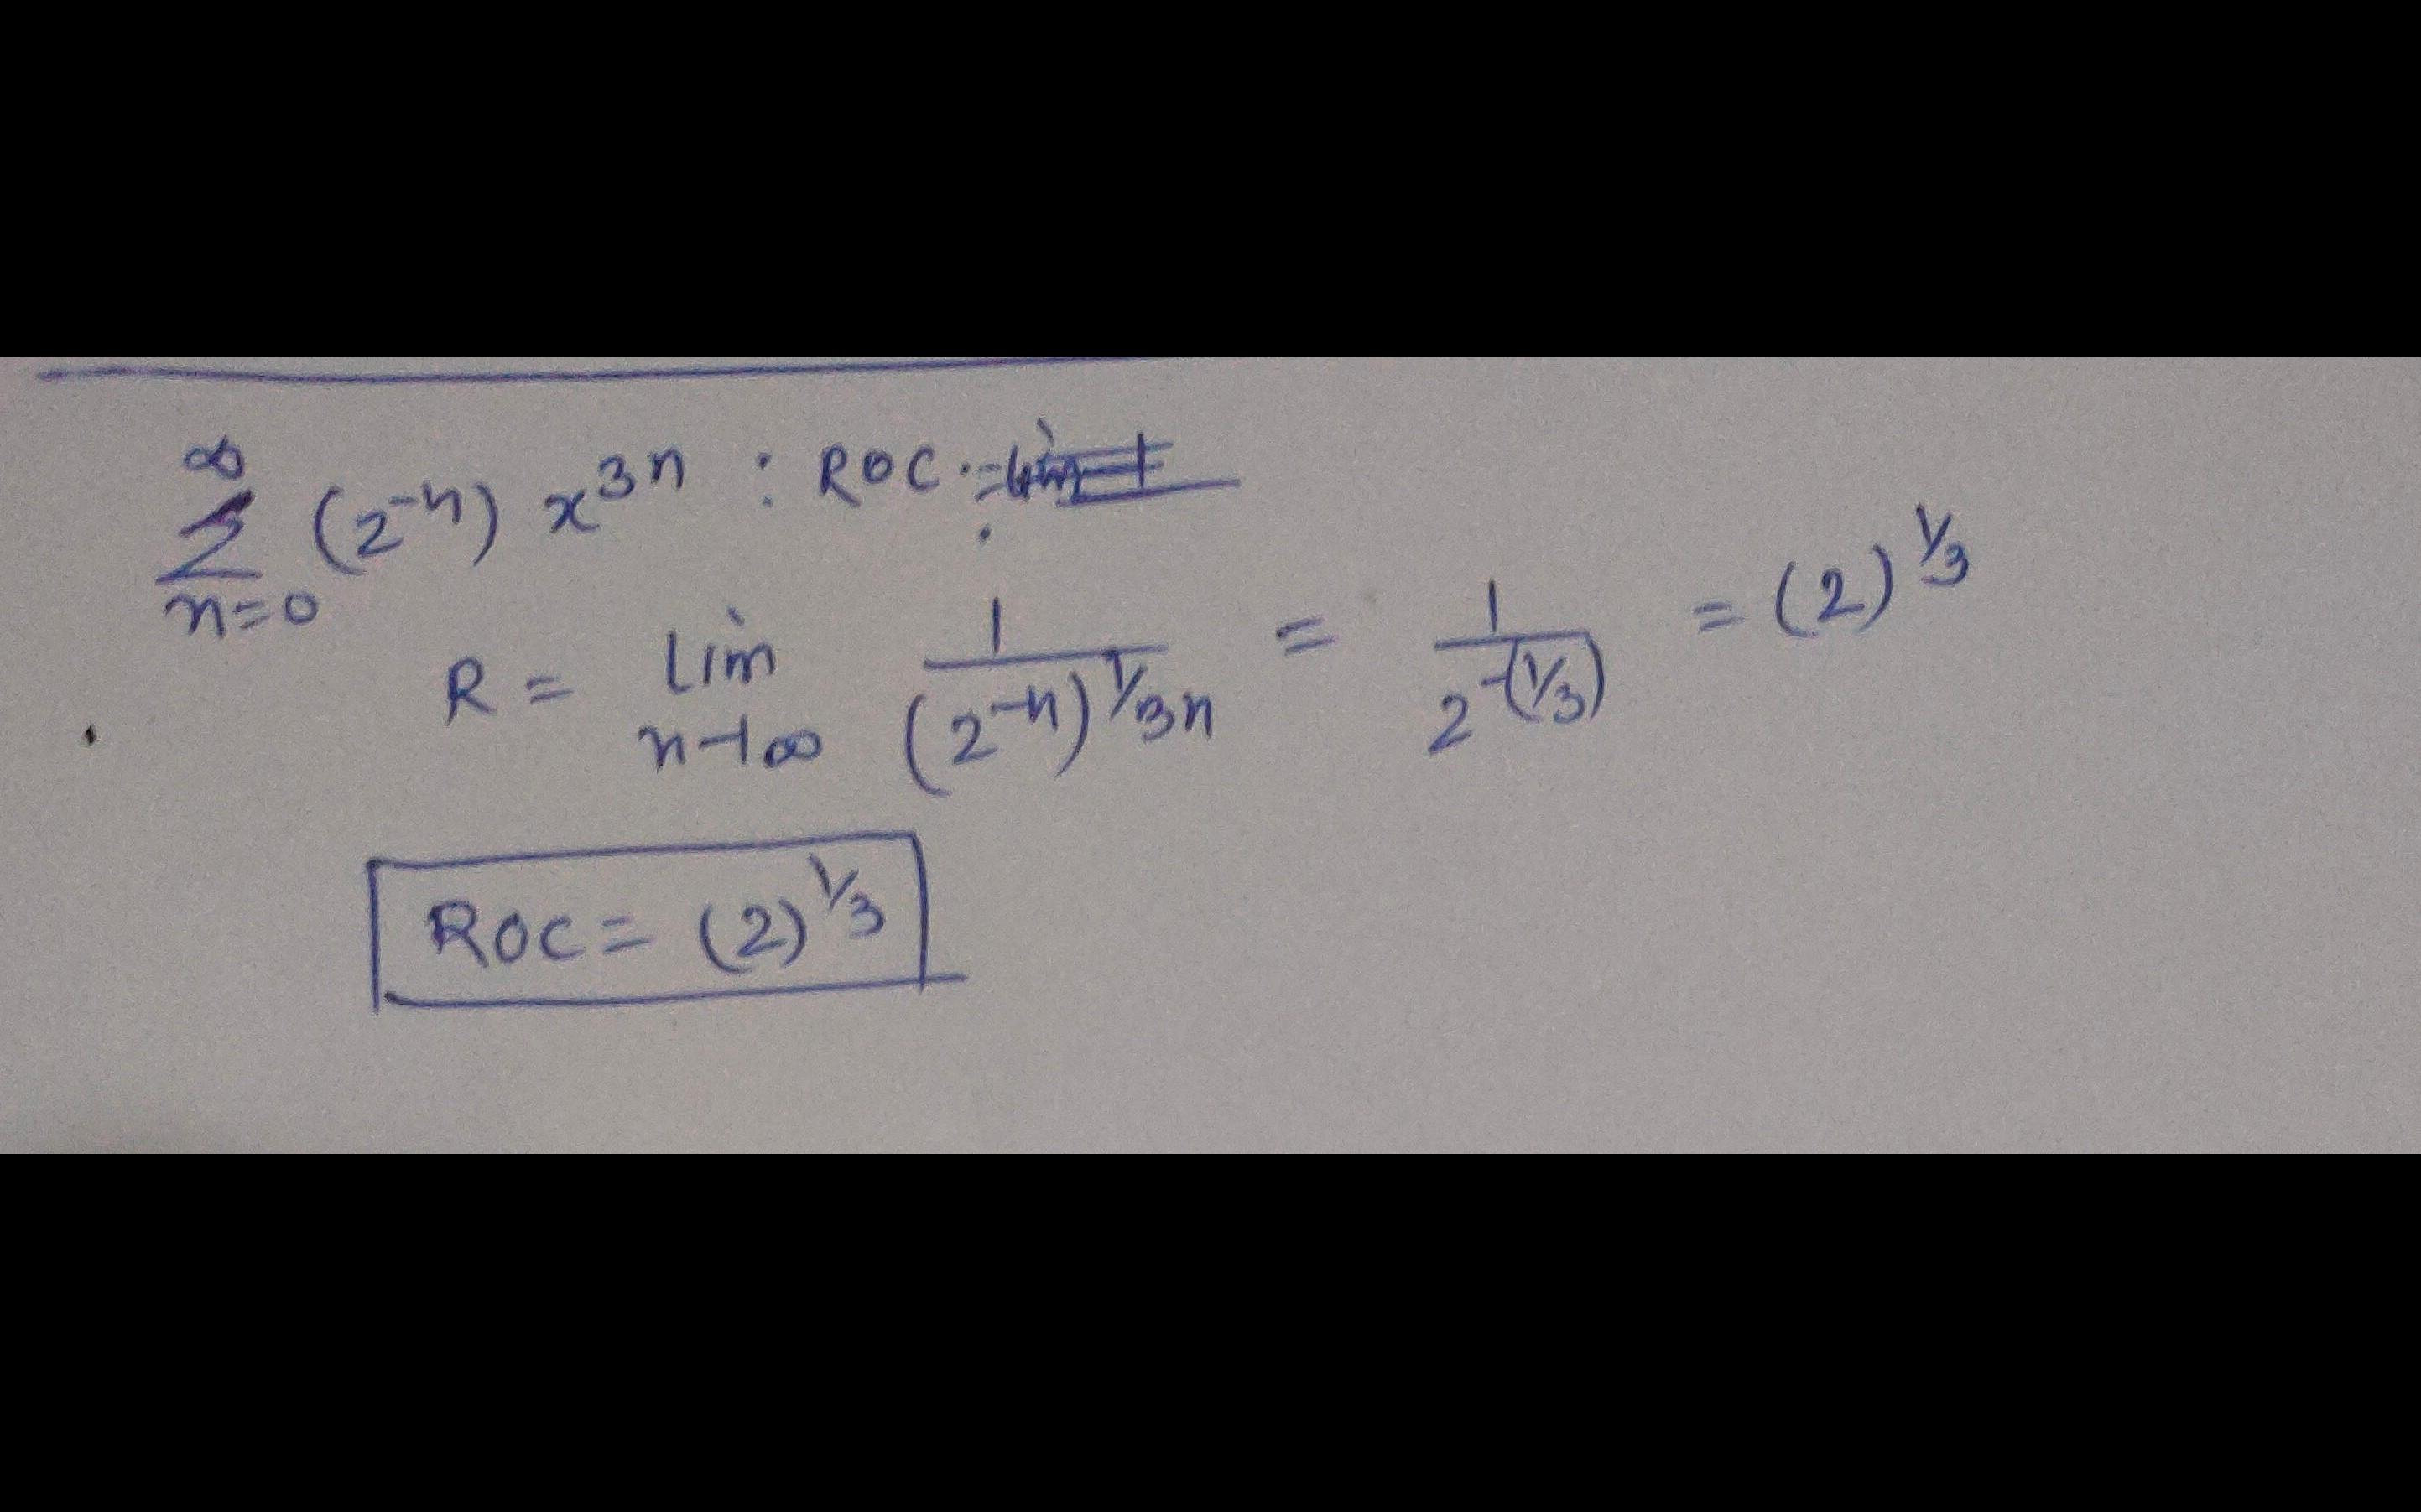 ∞
∑ (2⁻ⁿ) x³ⁿ : ROC
n=0
R = lim n→∞ 1/(2⁻ⁿ)^(1/3n) = 1/2^(-(1/3)) = (2)^(1/3)
ROC = (2)^(1/3)